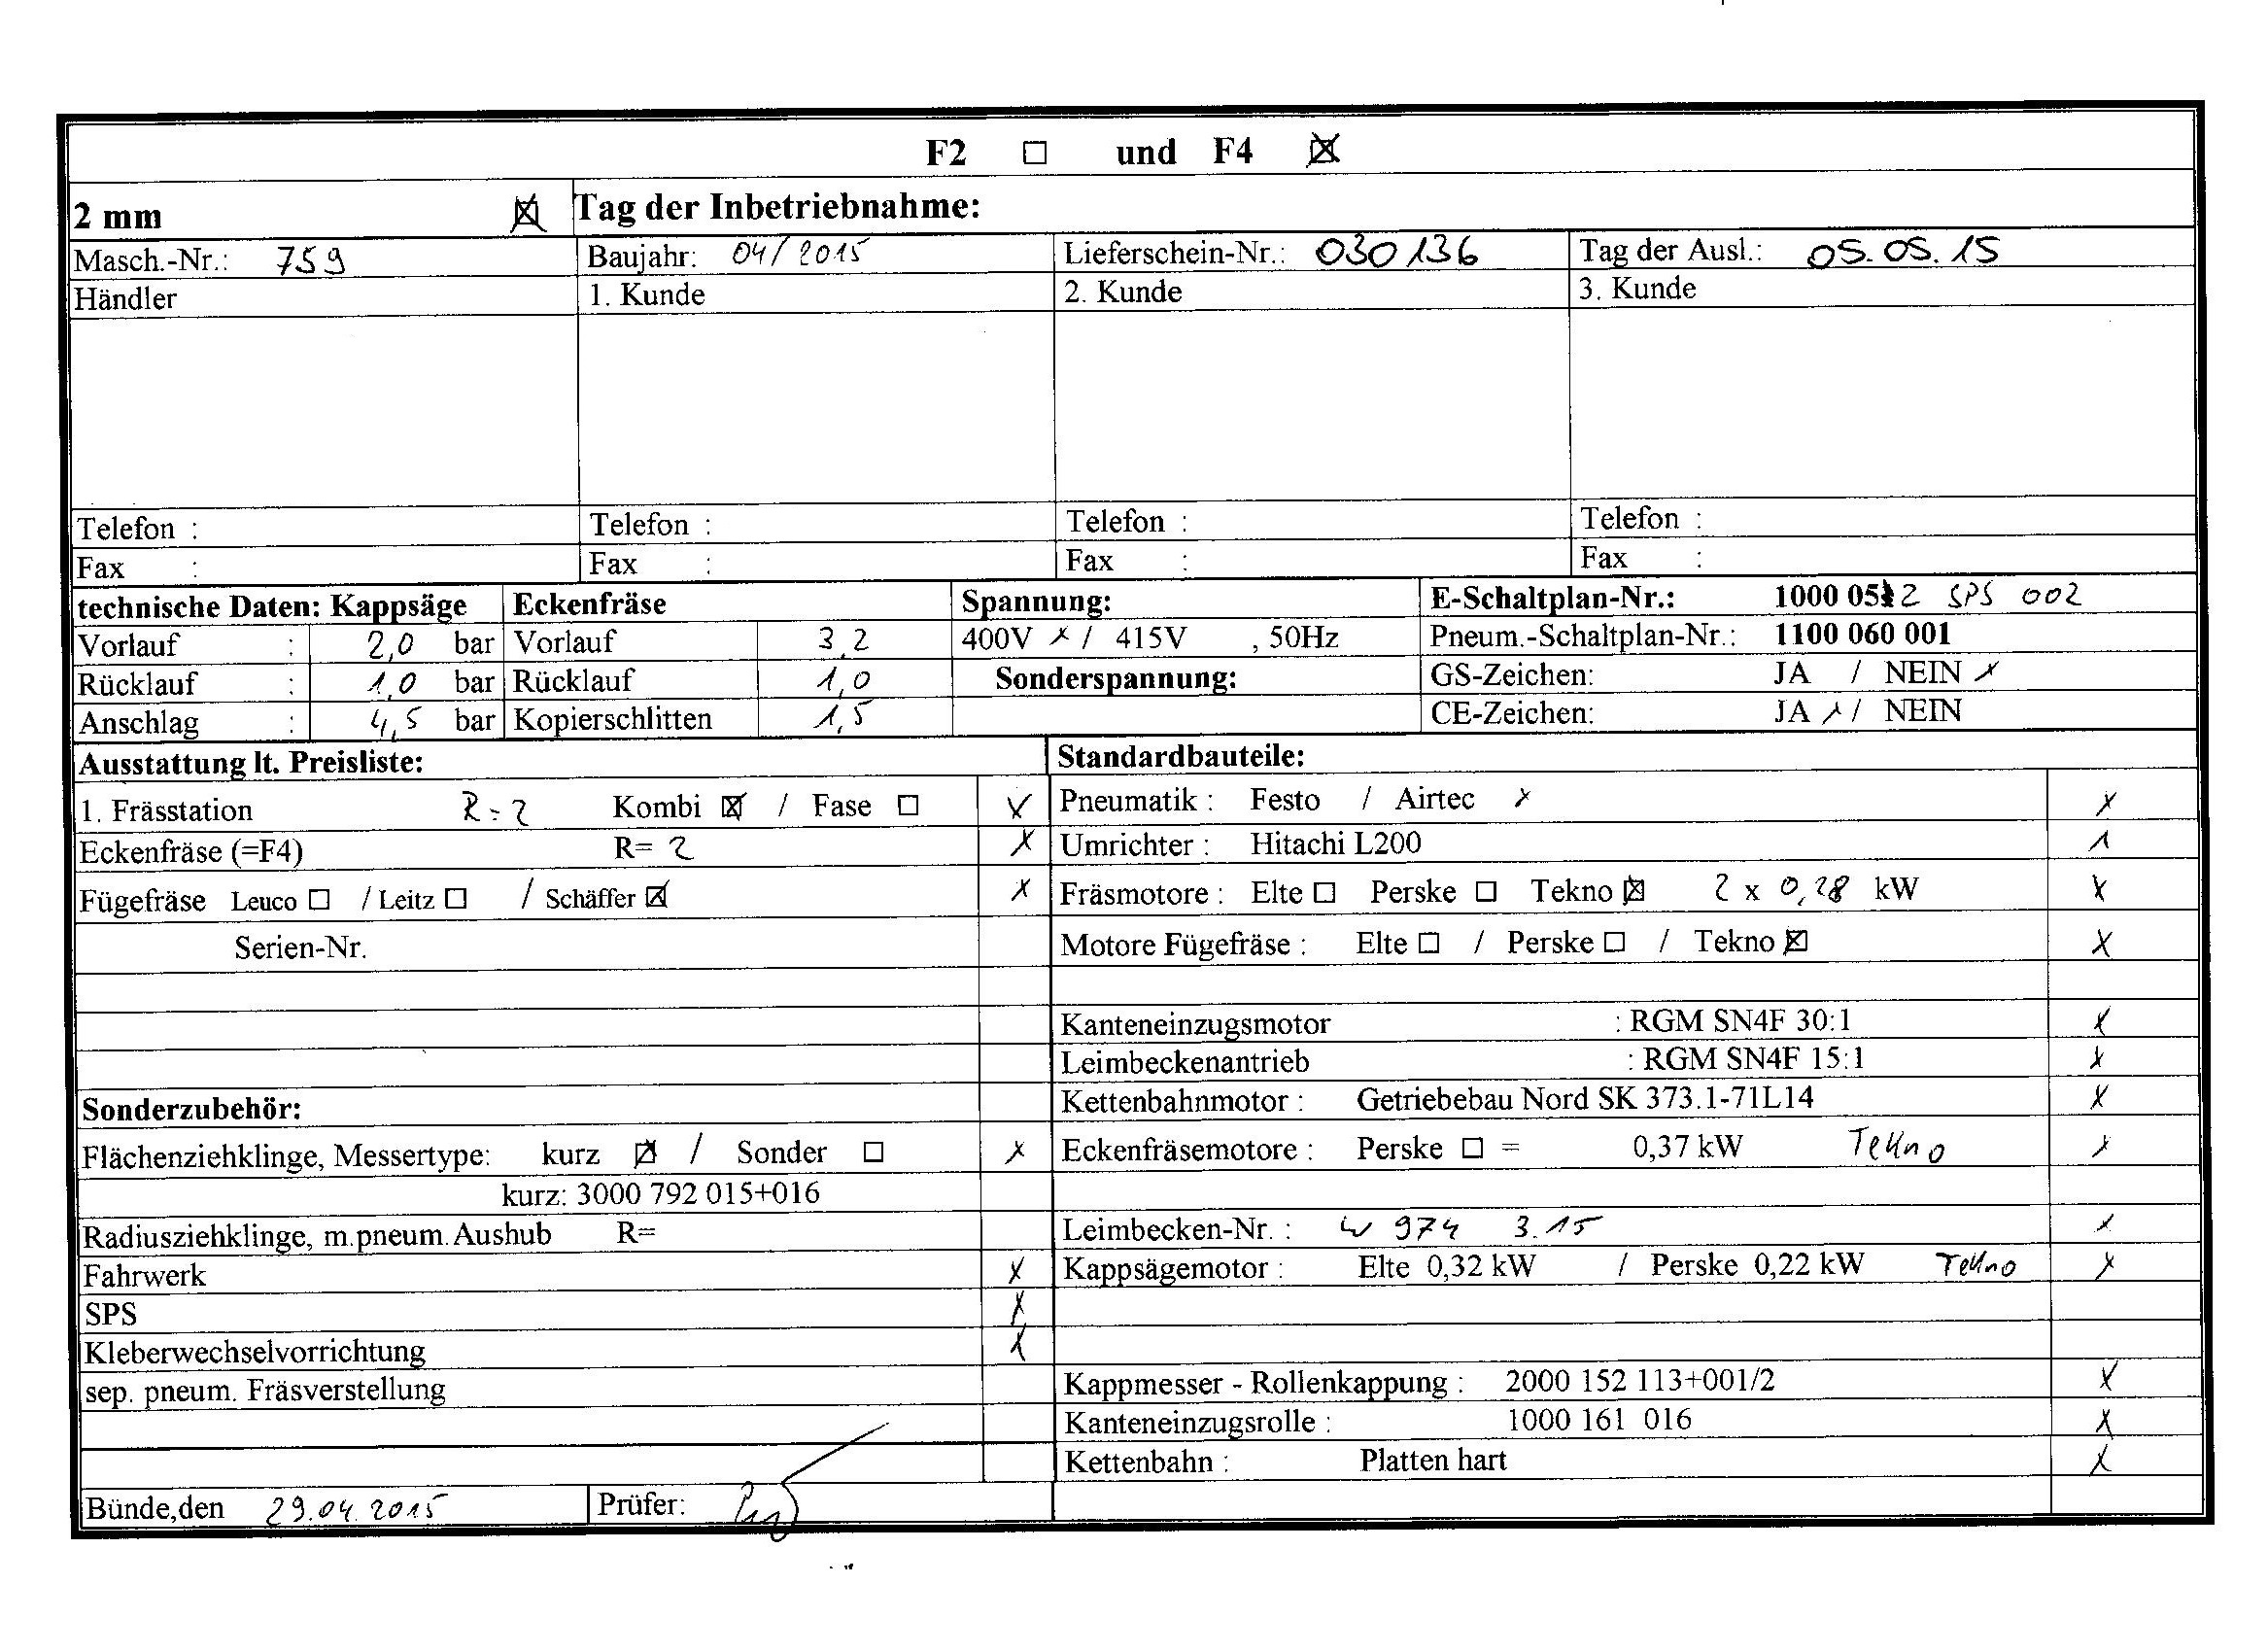 F2 ☐ und F4 ☒
2 mm ☒ Tag der Inbetriebnahme:
Masch.-Nr.: 759 Baujahr: 04/2015 Lieferschein-Nr.: 030136 Tag der Ausl.: 05.05.15
Händler 1. Kunde 2. Kunde 3. Kunde
Telefon : Telefon : Telefon : Telefon :
Fax : Fax : Fax : Fax :
technische Daten: Kappsäge Eckenfräse Spannung: E-Schaltplan-Nr.: 1000 052 SPS 002
Vorlauf : 2,0 bar Vorlauf 3,2 400V x / 415V , 50Hz Pneum.-Schaltplan-Nr.: 1100 060 001
Rücklauf : 1,0 bar Rücklauf 1,0 Sonderspannung: GS-Zeichen: JA / NEIN x
Anschlag : 4,5 bar Kopierschlitten 1,5 CE-Zeichen: JA x / NEIN
Ausstattung lt. Preisliste: Standardbauteile:
1. Frässtation R=2 Kombi ☒ / Fase ☐ x Pneumatik : Festo / Airtec x x
Eckenfräse (=F4) R= 2 x Umrichter : Hitachi L200 x
Fügefräse Leuco ☐ / Leitz ☐ / Schäffer ☒ x Fräsmotore : Elte ☐ Perske ☐ Tekno ☒ 2 x 0,28 kW x
Serien-Nr. Motore Fügefräse : Elte ☐ / Perske ☐ / Tekno ☒ x
Kanteneinzugsmotor : RGM SN4F 30:1 x
Leimbeckenantrieb : RGM SN4F 15:1 x
Sonderzubehör: Kettenbahnmotor : Getriebebau Nord SK 373.1-71L14 x
Flächenziehklinge, Messertype: kurz ☒ / Sonder ☐ x Eckenfräsemotore : Perske ☐ = 0,37 kW Tekno x
kurz: 3000 792 015+016
Radiusziehklinge, m.pneum. Aushub R= Leimbecken-Nr. : W 974 3.15 x
Fahrwerk x Kappsägemotor : Elte 0,32 kW / Perske 0,22 kW Tekno x
SPS x
Kleberwechselvorrichtung x
sep. pneum. Fräsverstellung Kappmesser - Rollenkappung : 2000 152 113+001/2 x
Kanteneinzugsrolle : 1000 161 016 x
Kettenbahn : Platten hart x
Bünde,den 29.04.2015 Prüfer: